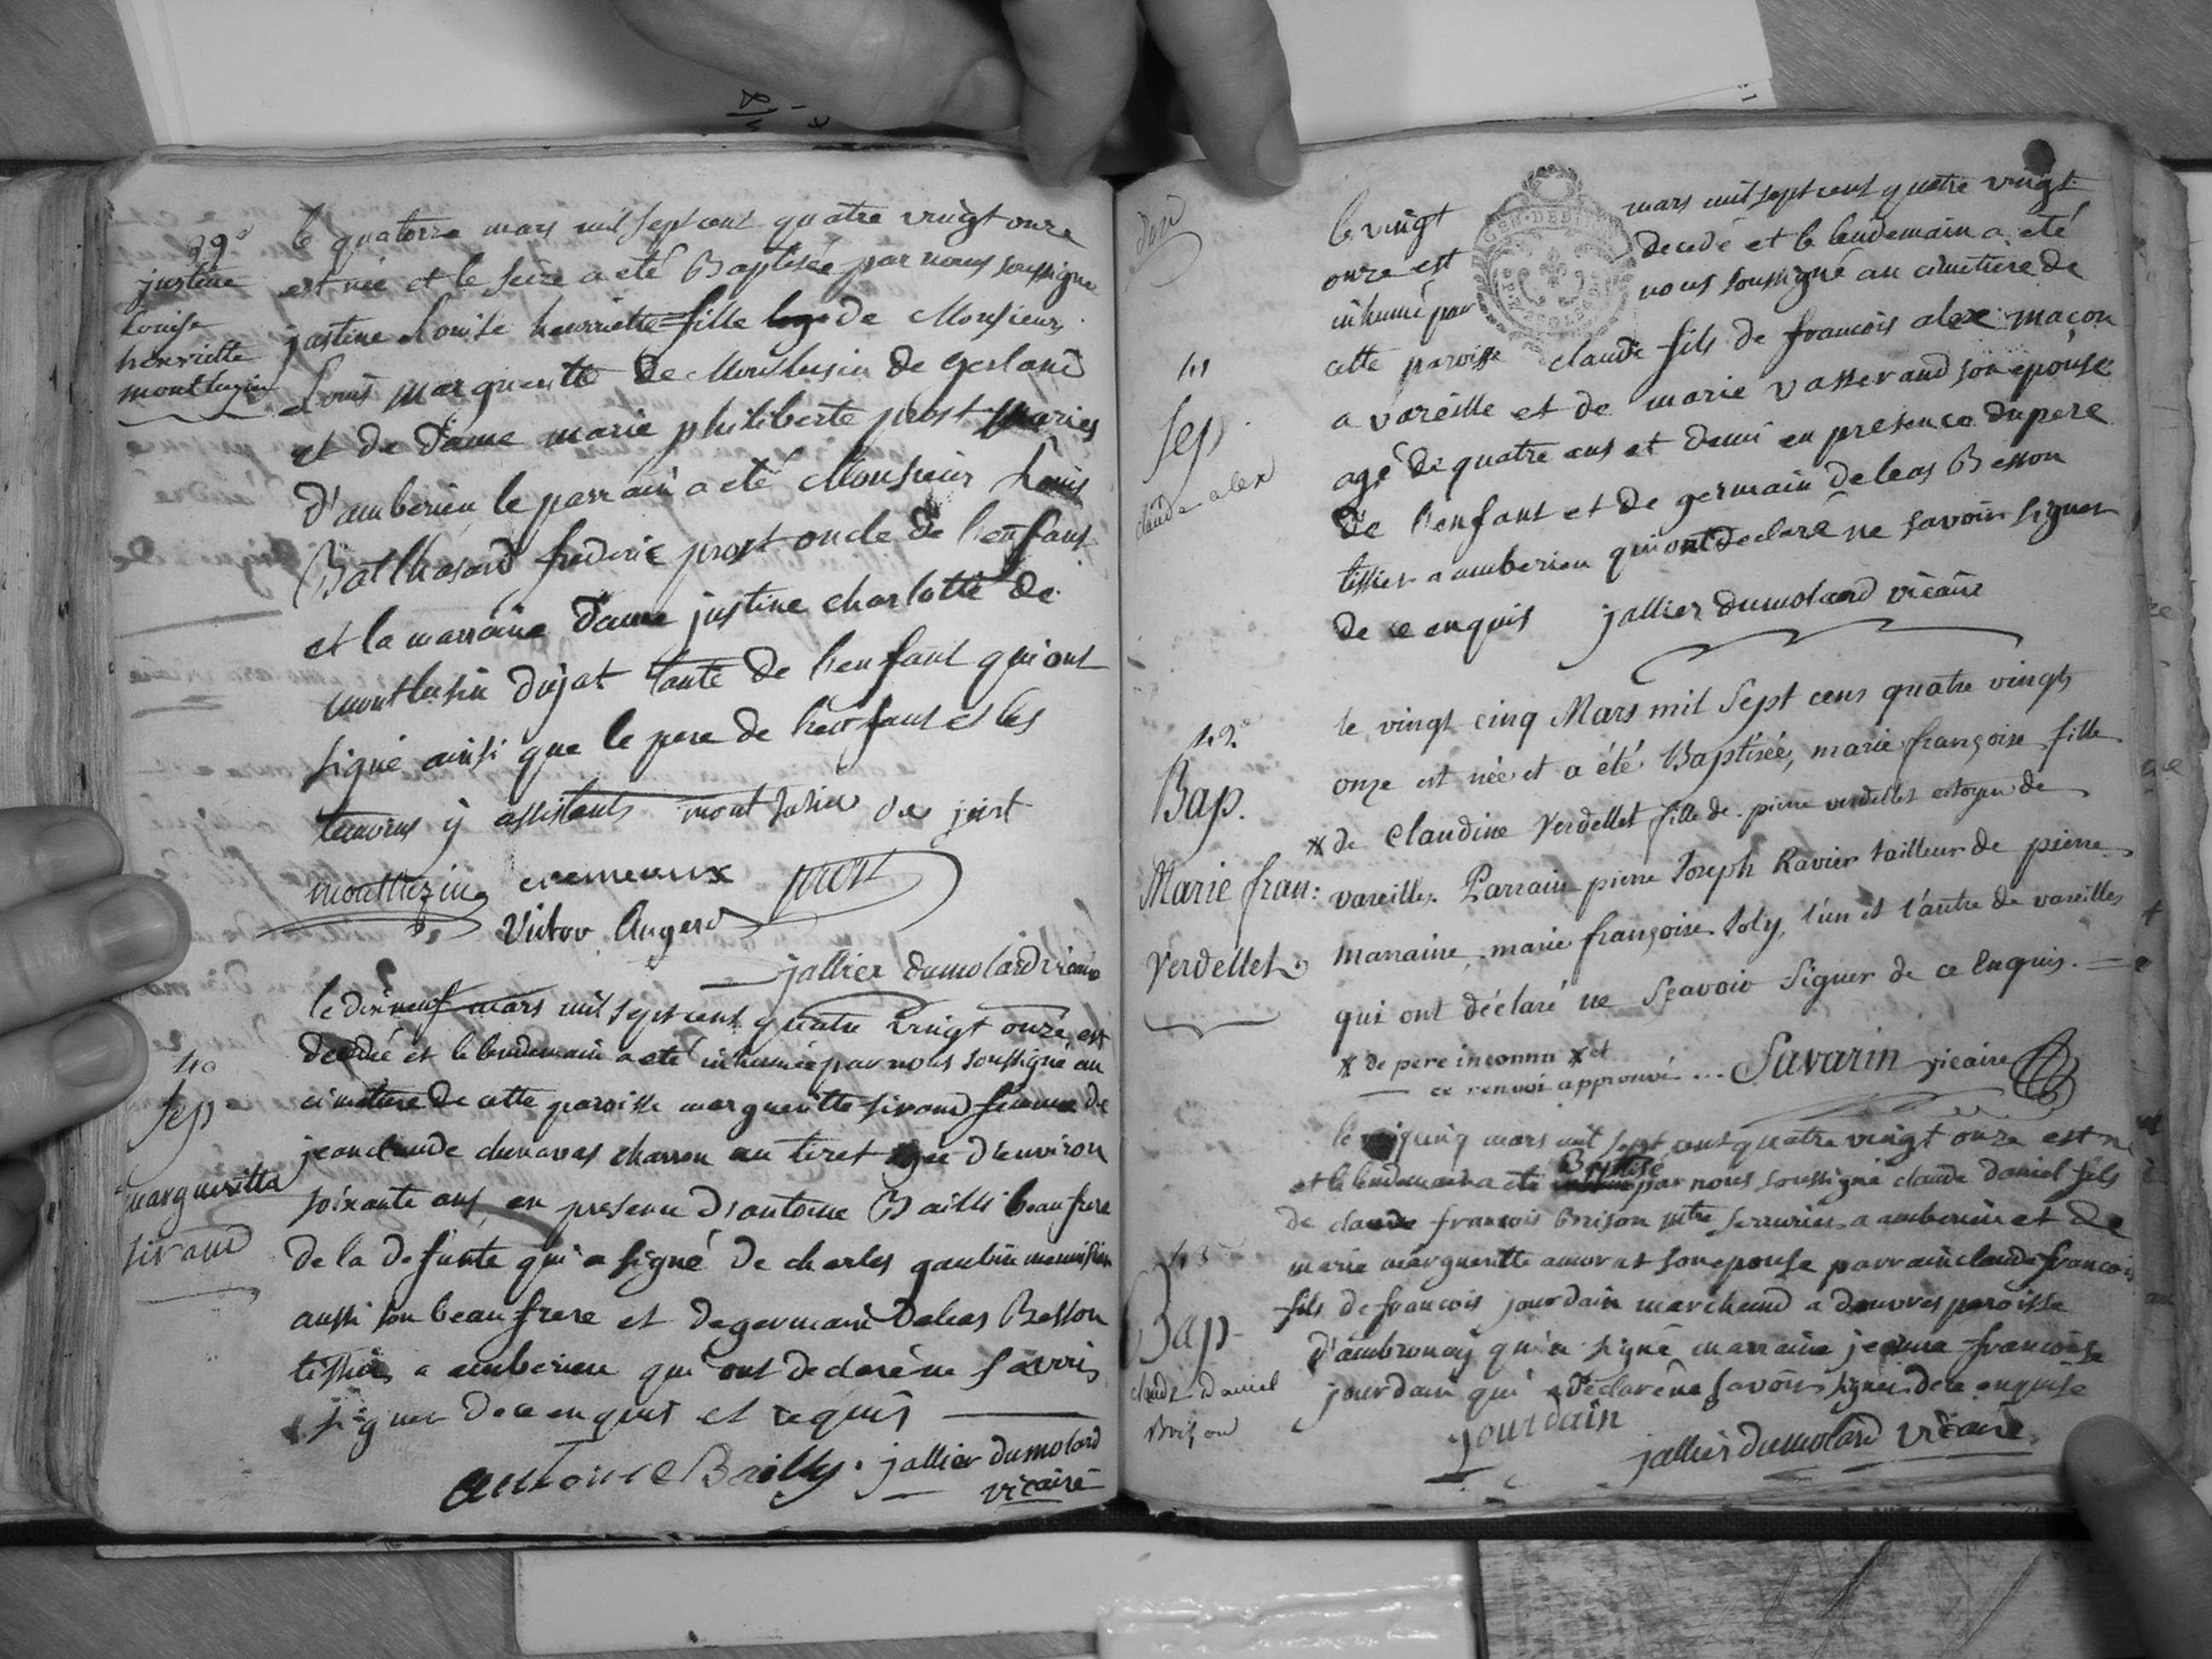 39e
justine
Louise
henriette
montluzin
le quatorze mars mil sept cent quatre vingt onze
est née et le seize a été Baptisée par nous soussigné
justine Louise henriette fille de Monsieur
Louis margueritte de Montlusin de gerland
et de dame marie philiberte prost mariés
d'amberieu le parrain a été Monsieur Louis
Balthasard frederic prost oncle de l'enfant
et la marraine dame justine charlotte de
montlusin dujat tante de l'enfant qui ont
signé ainsi que le pere de l'enfant et les
temoins y assistants
montluzin cremeaux prost
Victor Augerd
jallier dumolard vicaire
40
Sep
margueritte
sirand
le dix neuf mars mil sept cent quatre vingt onze est
decedée et le lendemain a été inhumée par nous soussigné au
cimetiere de cette paroisse margueritte sirand femme de
jean claude dunavas charron au tiret agée d'environ
soixante ans en presence d'antoine Bailli beau frere
de la defunte qui a signé de charles gaulin menuisier
aussi son beau frere et de germain Deleas Besson
tissier a amberieu qui ont declaré ne savoir
signer de ce enquis et requis
antoine Bailly . jallier dumolard
vicaire
41
Sep
claude alex
le vingt mars mil sept cent quatre vingt
onze est decedé et le lendemain a été
inhumé par nous soussigné au cimetiere de
cette paroisse claude fils de francois alex macon
a vareille et de marie vasserand son epouse
agé de quatre ans et demi en presence du pere
de l'enfant et de germain deleas Besson
tissier a amberieu qui ont declaré ne savoir signer
de ce enquis jallier dumolard vicaire
42e
Bap.
Marie fran:
Verdellet
le vingt cinq Mars mil Sept cens quatre vingts
onze est née et a été Baptisée, marie françoise fille
* de Claudine Verdellet fille de pierre verdellet citoyen de
vareilles. Parrain pierre Joseph Ravier tailleur de pierre
marraine, marie françoise Joly, l'un et l'autre de vareilles
qui ont déclaré ne Sçavoir Signer de ce Enquis.
* de pere inconnu * et
ce renvoi approuvé ... Savarin vicaire
43
Bap
claude daniel
Brison
le cinq mars mil sept cent quatre vingt onze est né
et le lendemain a été Baptisé par nous soussigné claude daniel fils
de claude francois Brison mtre serrurier a amberieu et de
marie margueritte amorat son epouse parrain claude francois
fils de francois jourdain marchand a douvres paroisse
d'ambronay qui a signé marraine jeanne francoise
jourdain qui a déclaré ne savoir signer de ce enquise
jourdain
jallier dumolard vicaire